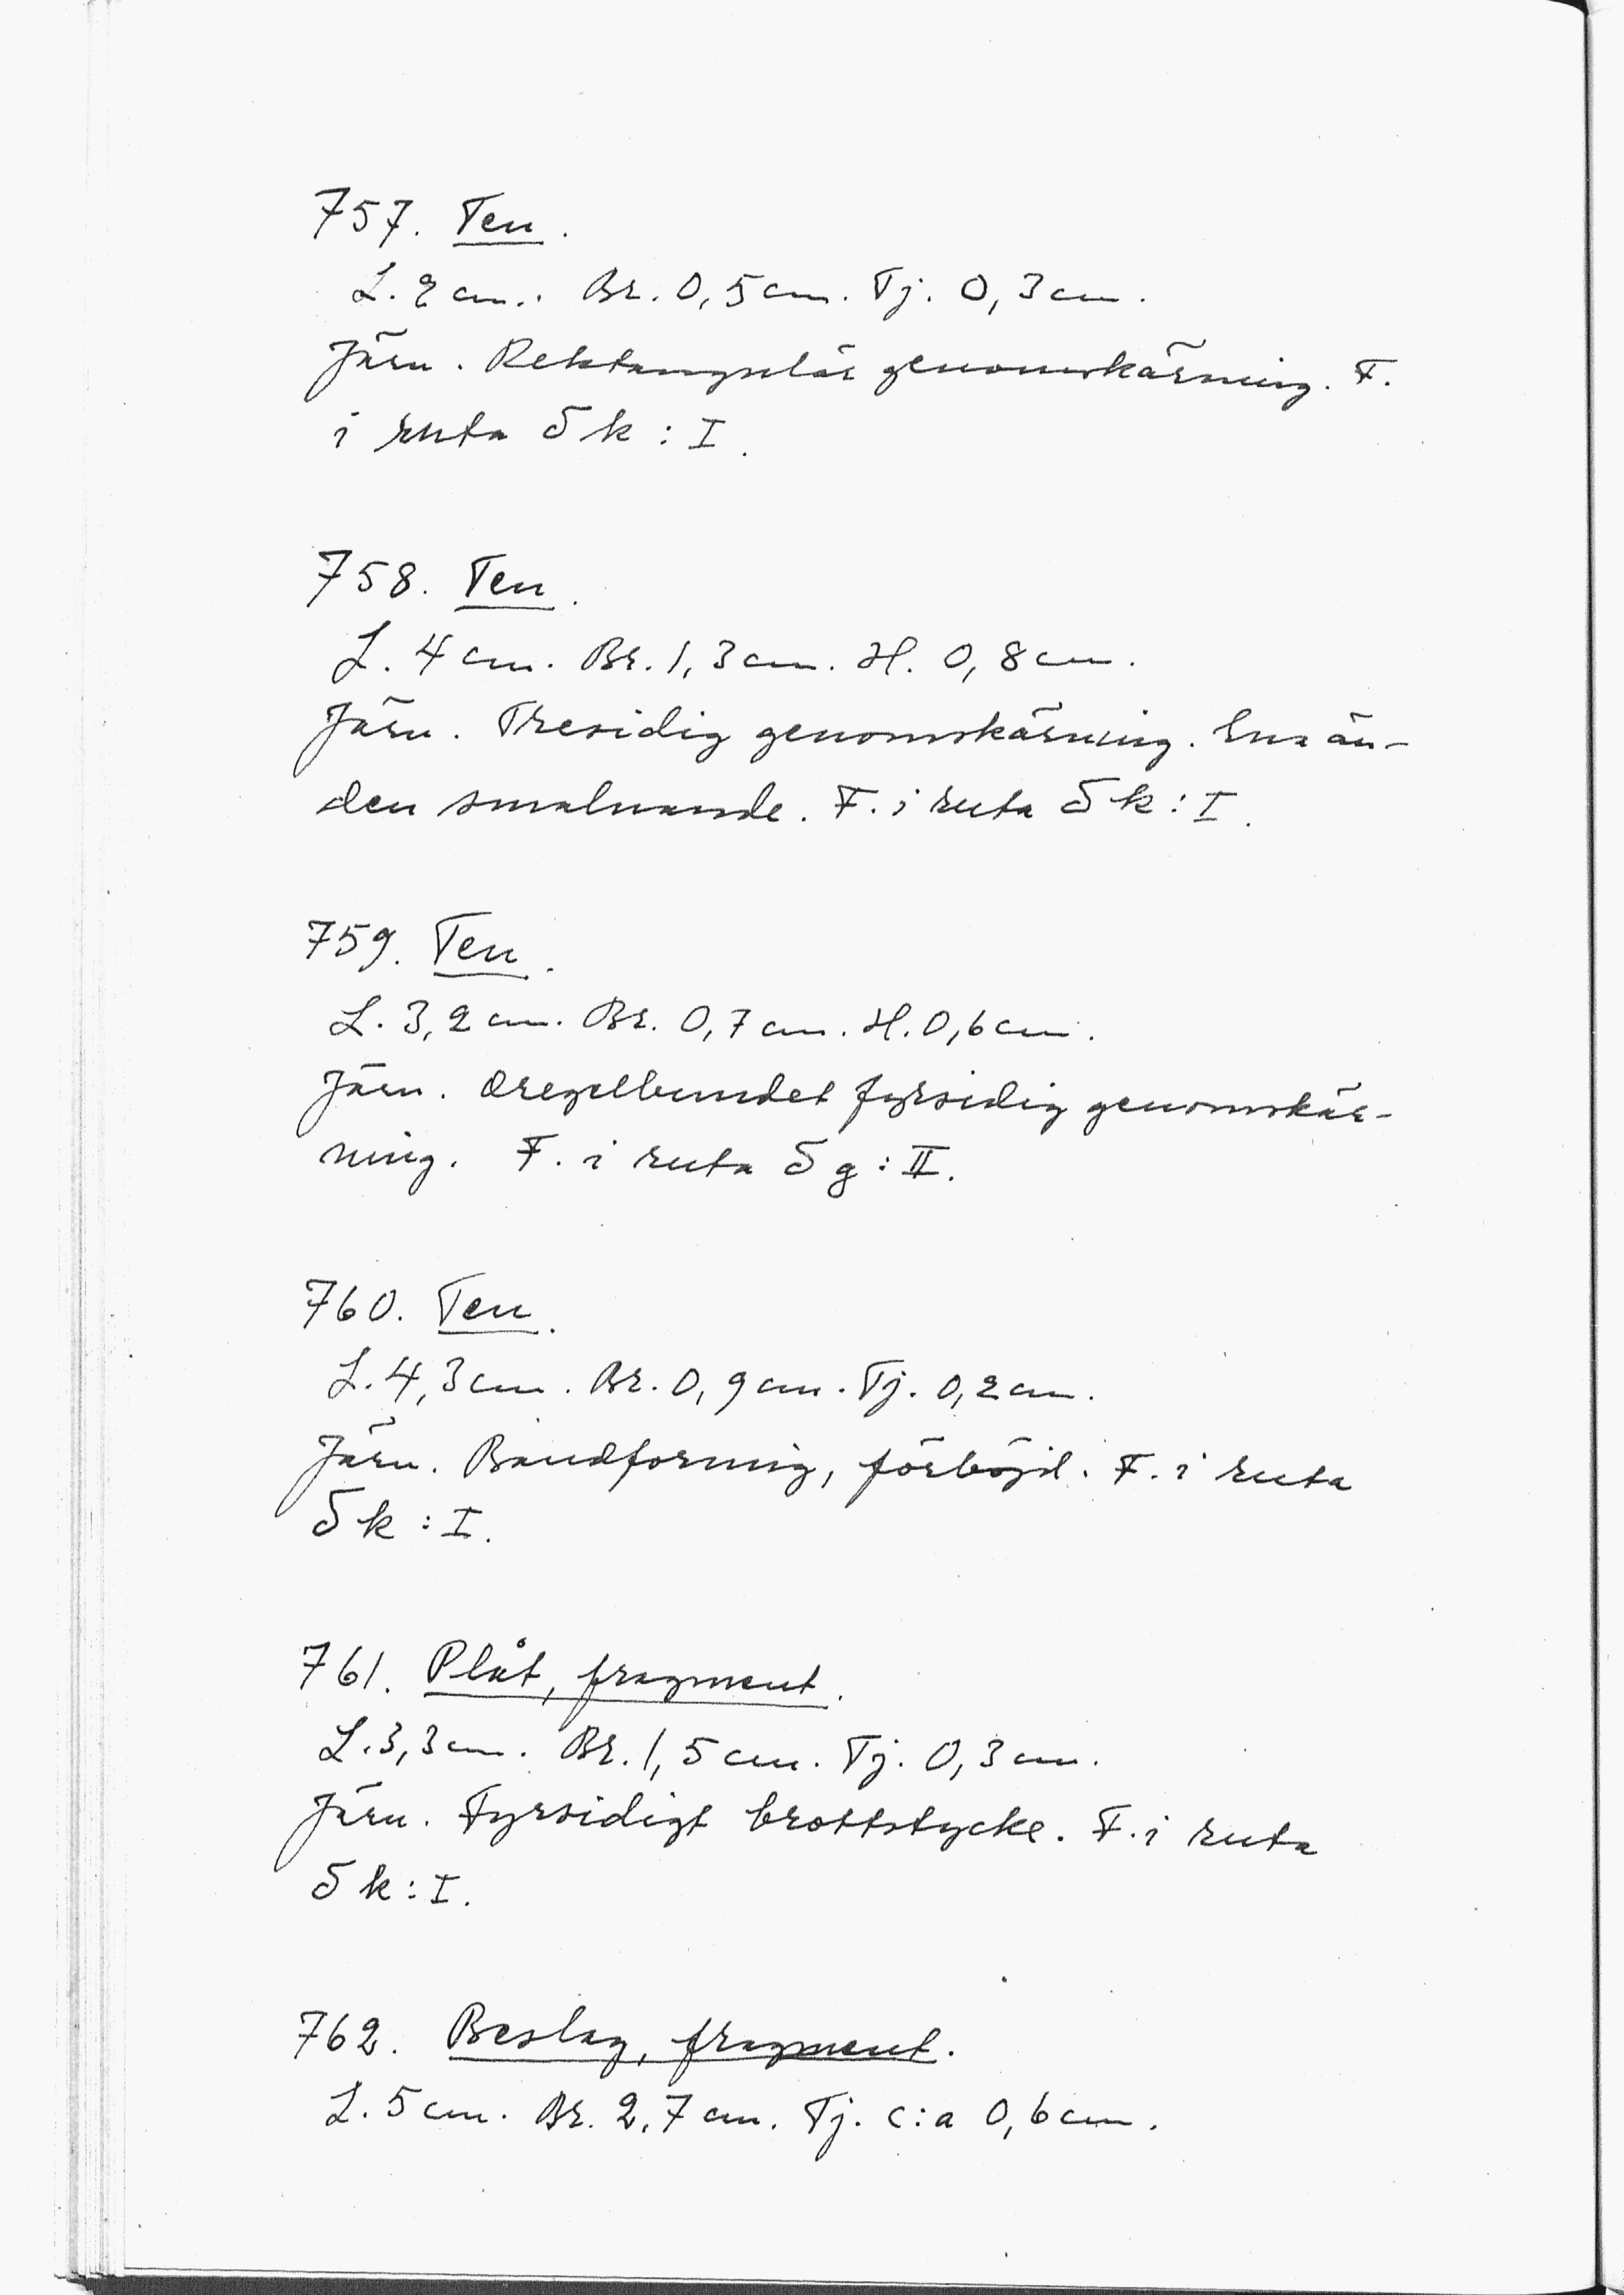 757. Ten.
L. 2 cm. Br. 0,5 cm. Tj. 0,3 cm.
Järn. Rektangulär genomskärning. F.
i ruta 5 k : I.
758. Ten.
L. 4 cm. Br. 1,3 cm. H. 0,8 cm.
Järn. Tresidig genomskärning. Ena än-
den smalnande. F. i ruta 5 k : I.
759. Ten.
L. 3,2 cm. Br. 0,7 cm. H. 0,6 cm.
Järn. Oregelbundet fyrsidig genomskär-
ning. F. i ruta 5 g : II.
760. Ten.
L. 4,3 cm. Br. 0,9 cm. Tj. 0,2 cm.
Järn. Bandformig, förböjd. F. i ruta
5 k : I.
761. Plåt, fragment.
L. 3,3 cm. Br. 1,5 cm. Tj. 0,3 cm.
Järn. Fyrsidigt brottstycke. F. i ruta
5 k : I.
762. Beslag, fragment.
L. 5 cm. Br. 2,7 cm. Tj. c:a 0,6 cm.